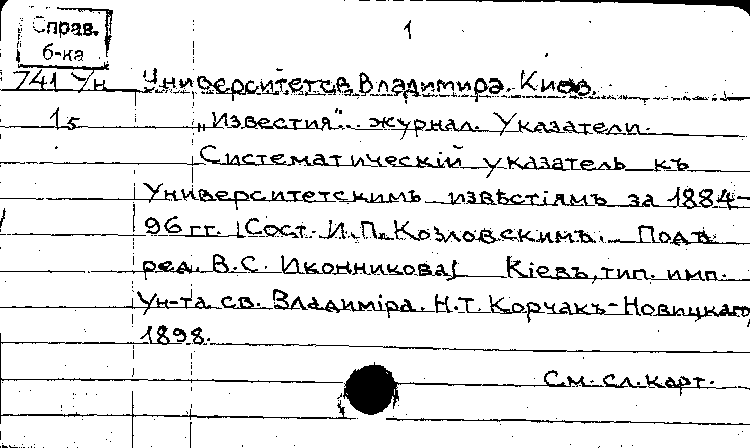 Справ.
б-ка
1
741 Ун Университет св. Владимира. Киев.
15 „Известия". журнал. Указатели.
Систематическій указатель къ
Университетскимъ извѣстіямъ за 1884-
96 гг. [Сост. И.П. Козловскимъ. Подъ
ред. В.С. Иконникова] Кіевъ, тип. имп.
Ун-та св. Владиміра. Н.Т. Корчакъ-Новицкаго,
1898.
См. сл. карт.